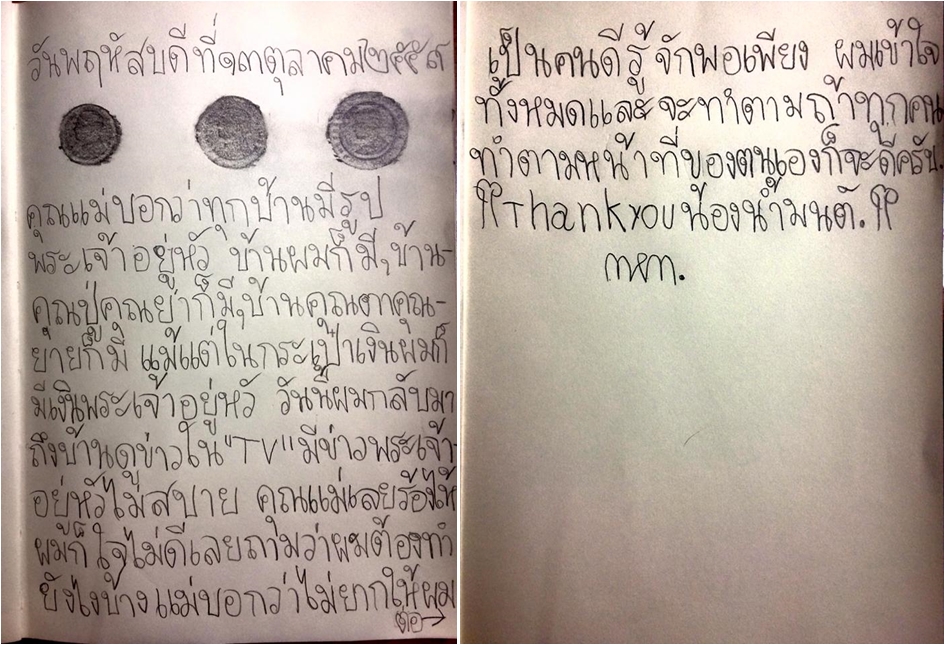 วันพฤหัสบดีที่๑๓ตุลาคม๒๕๕๙
คุณแม่บอกว่าทุกบ้านมีรูป
พระเจ้าอยู่หัว บ้านผมก็มี,บ้าน-
คุณปู่คุณย่าก็มี,บ้านคุณตาคุณ-
ยายก็มี แม้แต่ในกระเป๋าเงินผมก็
มีเงินพระเจ้าอยู่หัว วันนี้ผมกลับมา
ถึงบ้านดูข่าวใน"TV"มีข่าวพระเจ้า-
อยู่หัวไม่สบาย คุณแม่เลยร้องไห้
ผมก็ใจไม่ดีเลยถามว่าผมต้องทำ
ยังไงบ้างแม่บอกว่าไม่ยากให้ผม
ต่อ→
เป็นคนดีรู้จักพอเพียง ผมเข้าใจ
ทั้งหมดและจะทำตามถ้าทุกคน
ทำตามหน้าที่ของตนเองก็จะดีครับ.
Thankyouน้องน้ำมนต์.